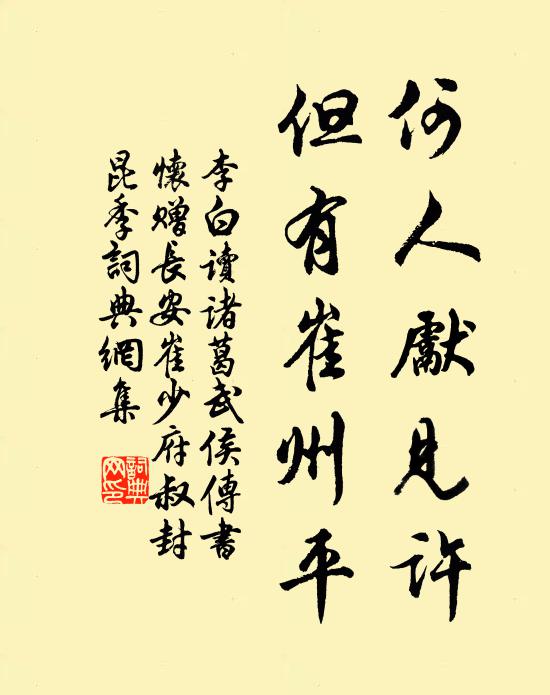 何人獻見許
但有崔州平
李白讀諸葛武侯傳書
懷贈長安崔少府叔封
昆季詞典網集
詞典
网印